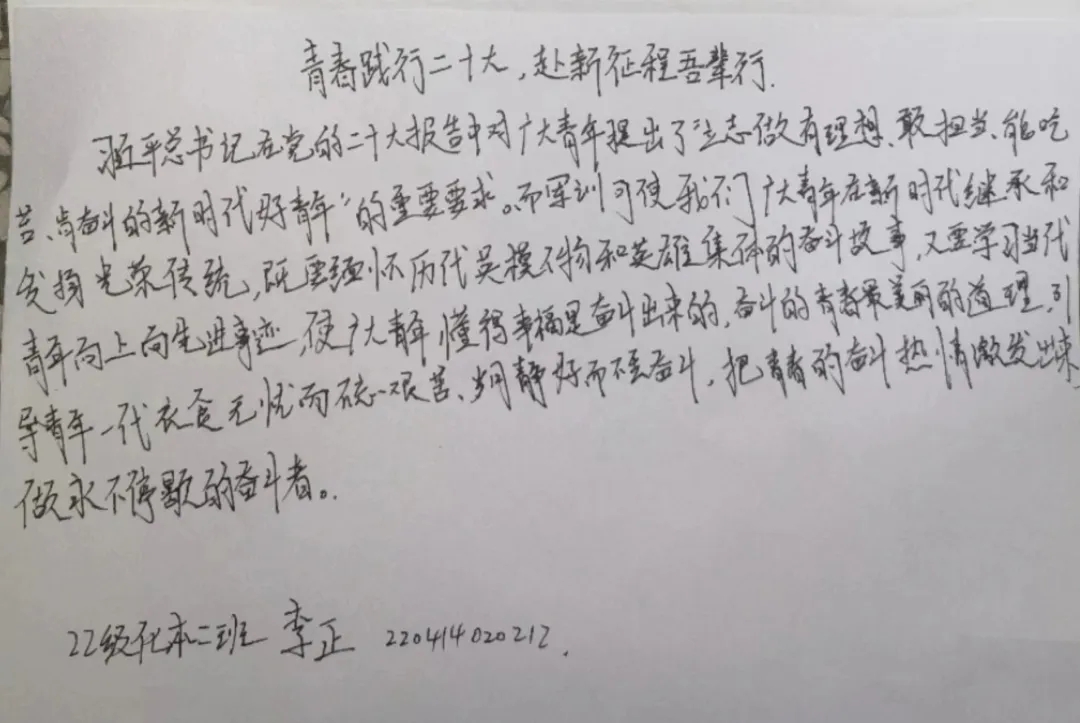 青春践行二十大，赴新征程吾辈行.
习近平总书记在党的二十大报告中对广大青年提出了“立志做有理想、敢担当、能吃
苦、肯奋斗的新时代好青年”的重要要求。而军训可使我们广大青年在新时代继承和
发扬光荣传统，既要缅怀历代英模人物和英雄集体的奋斗故事，又要学习当代
青年向上向先进事迹，使广大青年懂得幸福是奋斗出来的，奋斗的青春最美丽的道理，引
导青年一代衣食无忧而不忘艰苦、岁月静好而不丢奋斗，把青春的奋斗热情激发出来
做永不停歇的奋斗者。
22级化本二班 李正 220414020212.